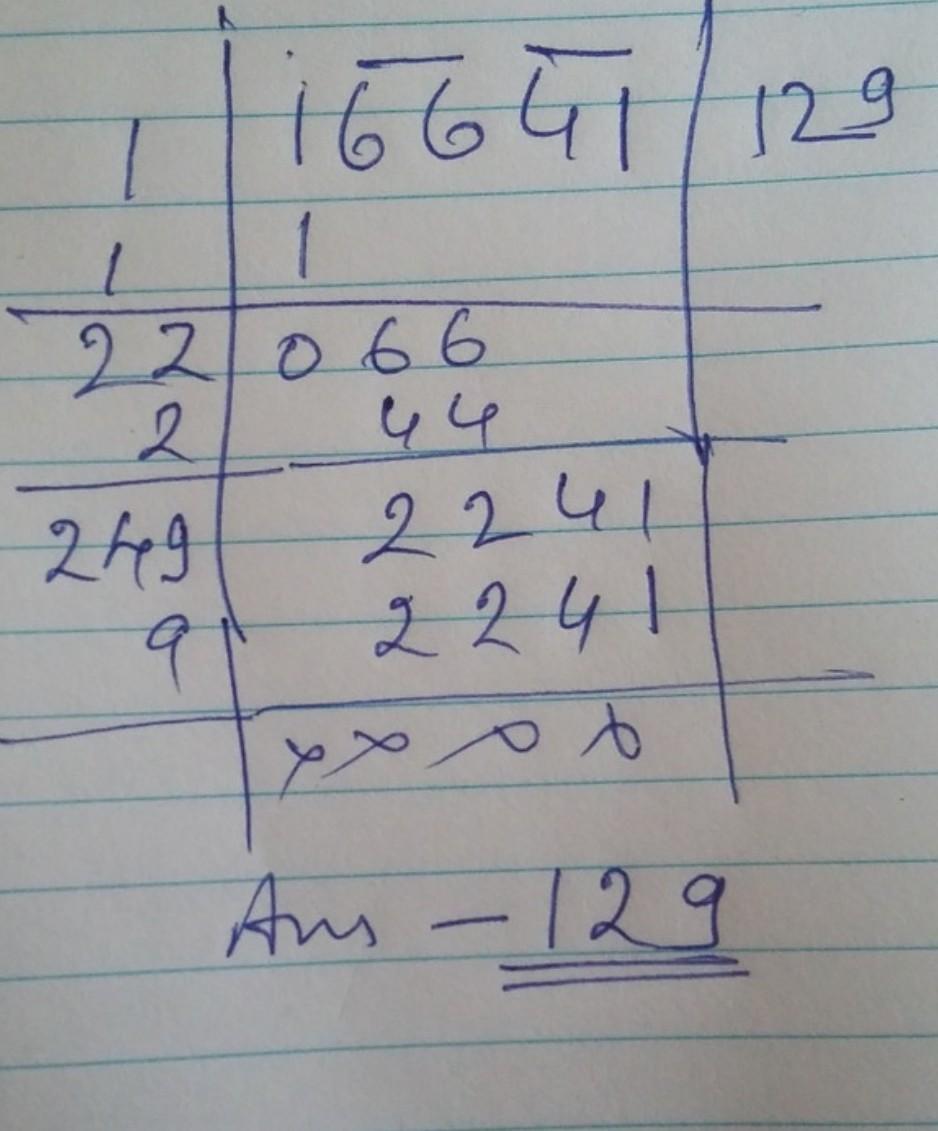 1 16641 129
1 1
22 066
2 44
249 2241
9 2241
xx00
Ans – 129